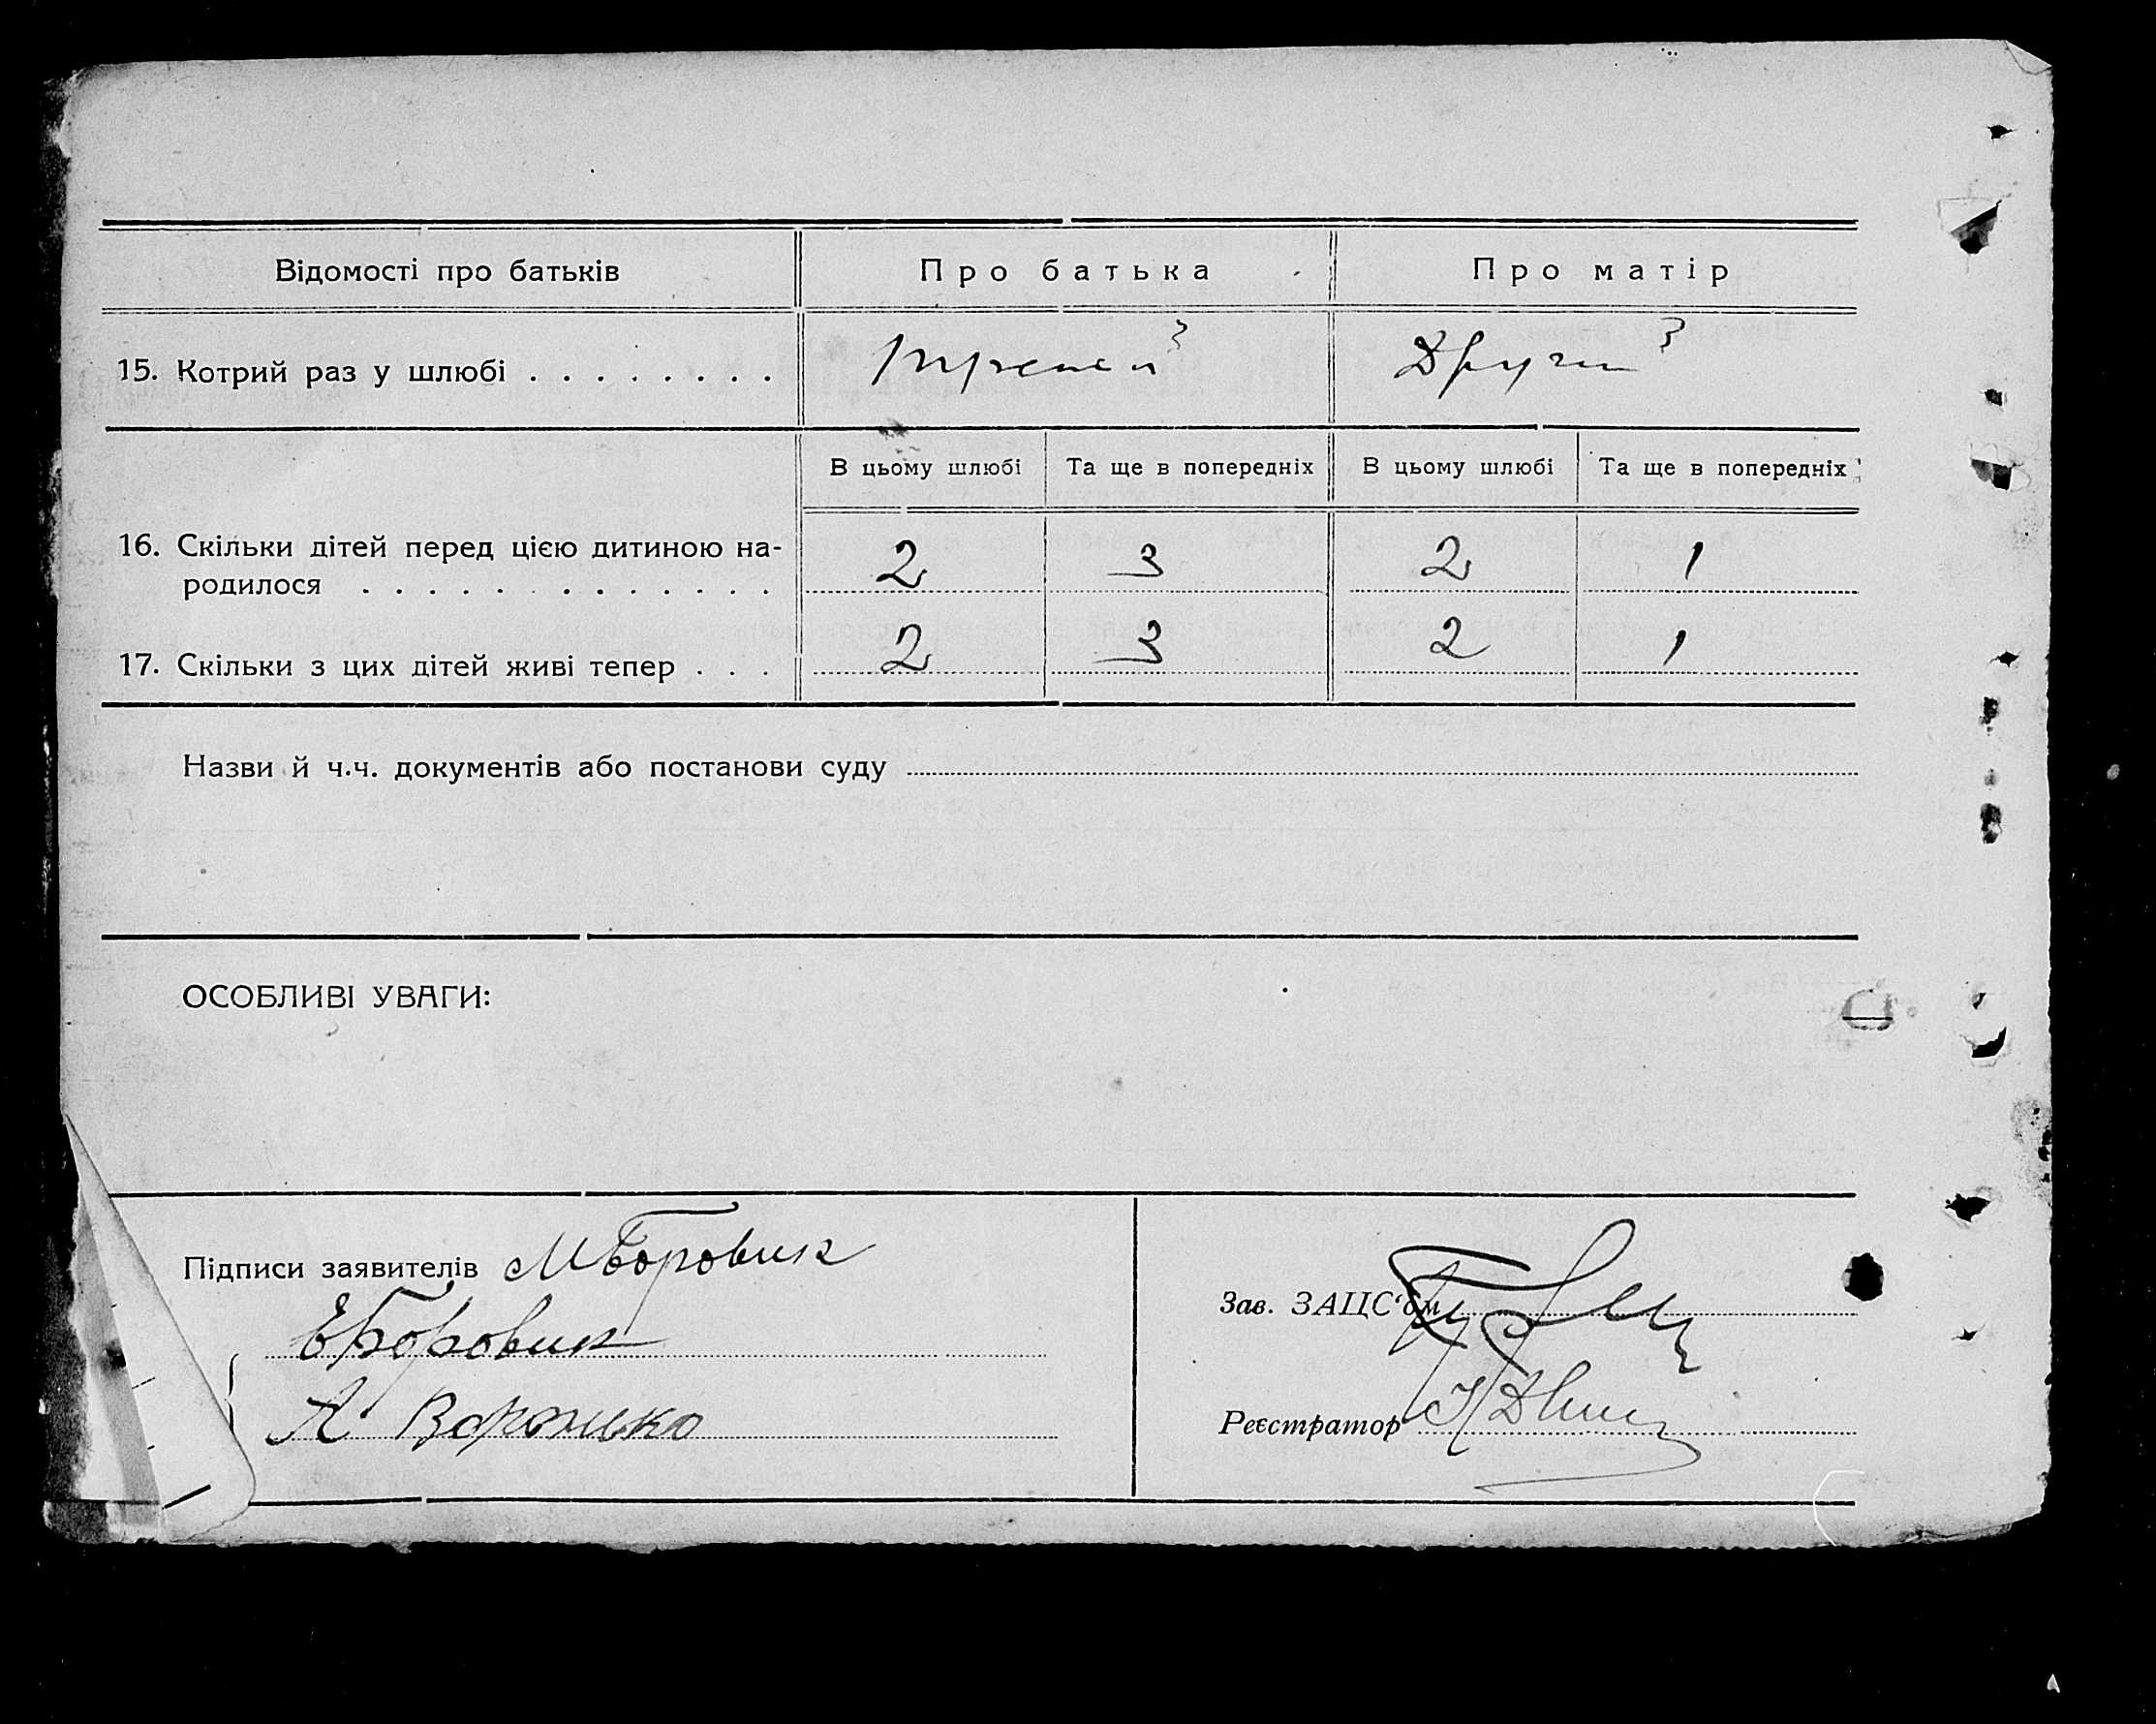 Відомості про батьків Про батька Про матір
15. Котрий раз у шлюбі . . . . . . . . Другий
В цьому шлюбі Та ще в попередніх В цьому шлюбі Та ще в попередніх
16. Скільки дітей перед цією дитиною на-
родилося . . . . . . . . . . . . . 2 3 2 1
17. Скільки з цих дітей живі тепер . . . 2 3 2 1
Назви й ч.ч. документів або постанови суду
ОСОБЛИВІ УВАГИ:
Підписи заявителів М Боровик
Е Боровик
А Воронько
Зав. ЗАЦС'ом
Реєстратор